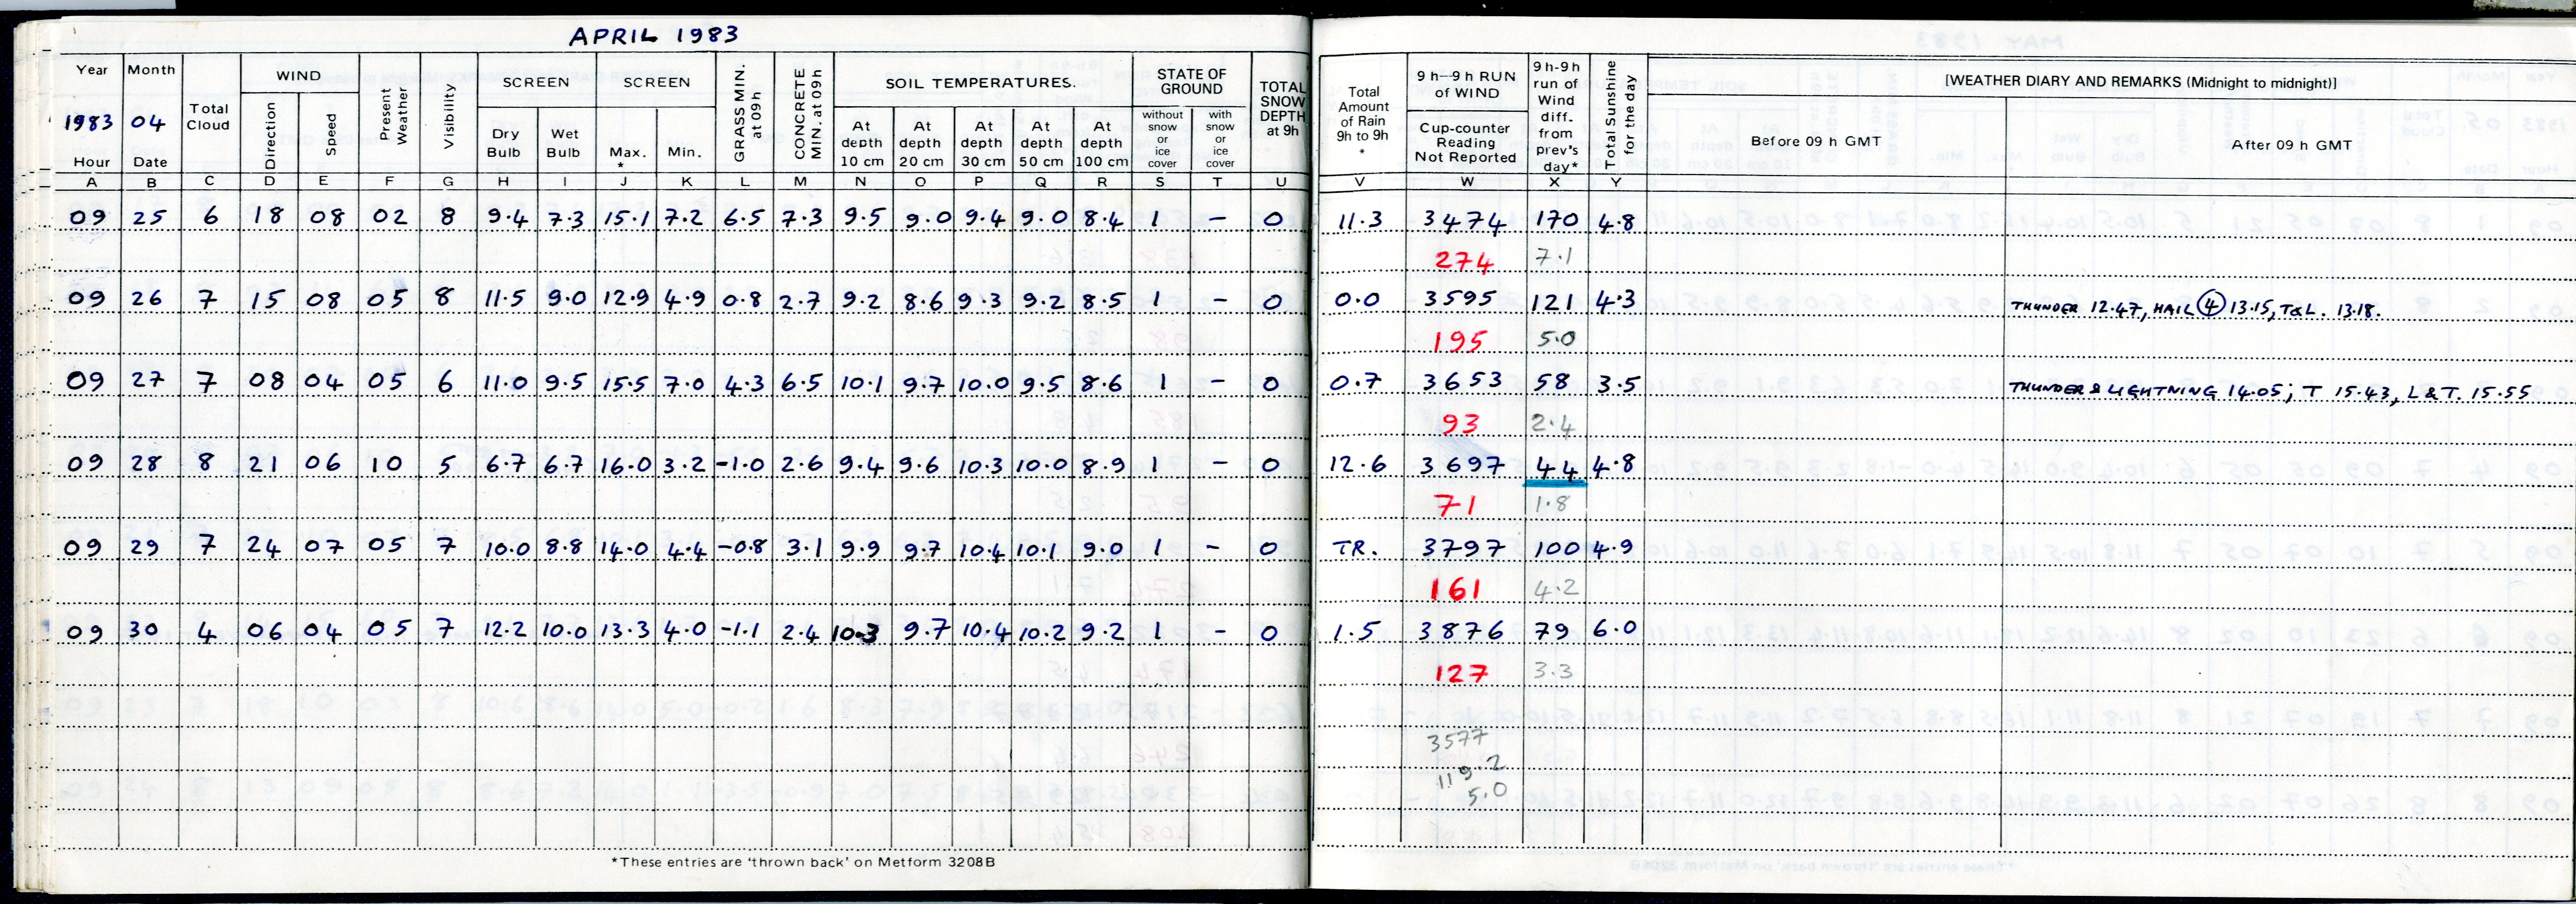 APRIL 1983
Year Month Total Cloud WIND Present Weather Visibility SCREEN SCREEN GRASS MIN. at 09h CONCRETE MIN. at 09h SOIL TEMPERATURES. STATE OF GROUND TOTAL SNOW DEPTH at 9h Total Amount of Rain 9h to 9h * 9 h—9 h RUN of WIND 9h-9h run of Wind diff. from prev's day* Total Sunshine for the day [WEATHER DIARY AND REMARKS (Midnight to midnight)]
1983 04 Direction Speed Dry Bulb Wet Bulb Max. * Min. At depth 10 cm At depth 20 cm At depth 30 cm At depth 50 cm At depth 100 cm without snow or ice cover with snow or ice cover Cup-counter Reading Not Reported Before 09 h GMT After 09 h GMT
Hour Date
A B C D E F G H I J K L M N O P Q R S T U V W X Y
09 25 6 18 08 02 8 9.4 7.3 15.1 7.2 6.5 7.3 9.5 9.0 9.4 9.0 8.4 1 – 0 11.3 3474 170 4.8
274 7.1
09 26 7 15 08 05 8 11.5 9.0 12.9 4.9 0.8 2.7 9.2 8.6 9.3 9.2 8.5 1 – 0 0.0 3595 121 4.3 THUNDER 12.47, HAIL (4) 13.15, T&L. 13.18.
195 5.0
09 27 7 08 04 05 6 11.0 9.5 15.5 7.0 4.3 6.5 10.1 9.7 10.0 9.5 8.6 1 – 0 0.7 3653 58 3.5 THUNDER & LIGHTNING 14.05; T 15.43, L & T. 15.55
93 2.4
09 28 8 21 06 10 5 6.7 6.7 16.0 3.2 -1.0 2.6 9.4 9.6 10.3 10.0 8.9 1 – 0 12.6 3697 44 4.8
71 1.8
09 29 7 24 07 05 7 10.0 8.8 14.0 4.4 -0.8 3.1 9.9 9.7 10.4 10.1 9.0 1 – 0 TR. 3797 100 4.9
161 4.2
09 30 4 06 04 05 7 12.2 10.0 13.3 4.0 -1.1 2.4 10.3 9.7 10.4 10.2 9.2 1 – 0 1.5 3876 79 6.0
127 3.3
3577
119.2
5.0
*These entries are 'thrown back' on Metform 3208B